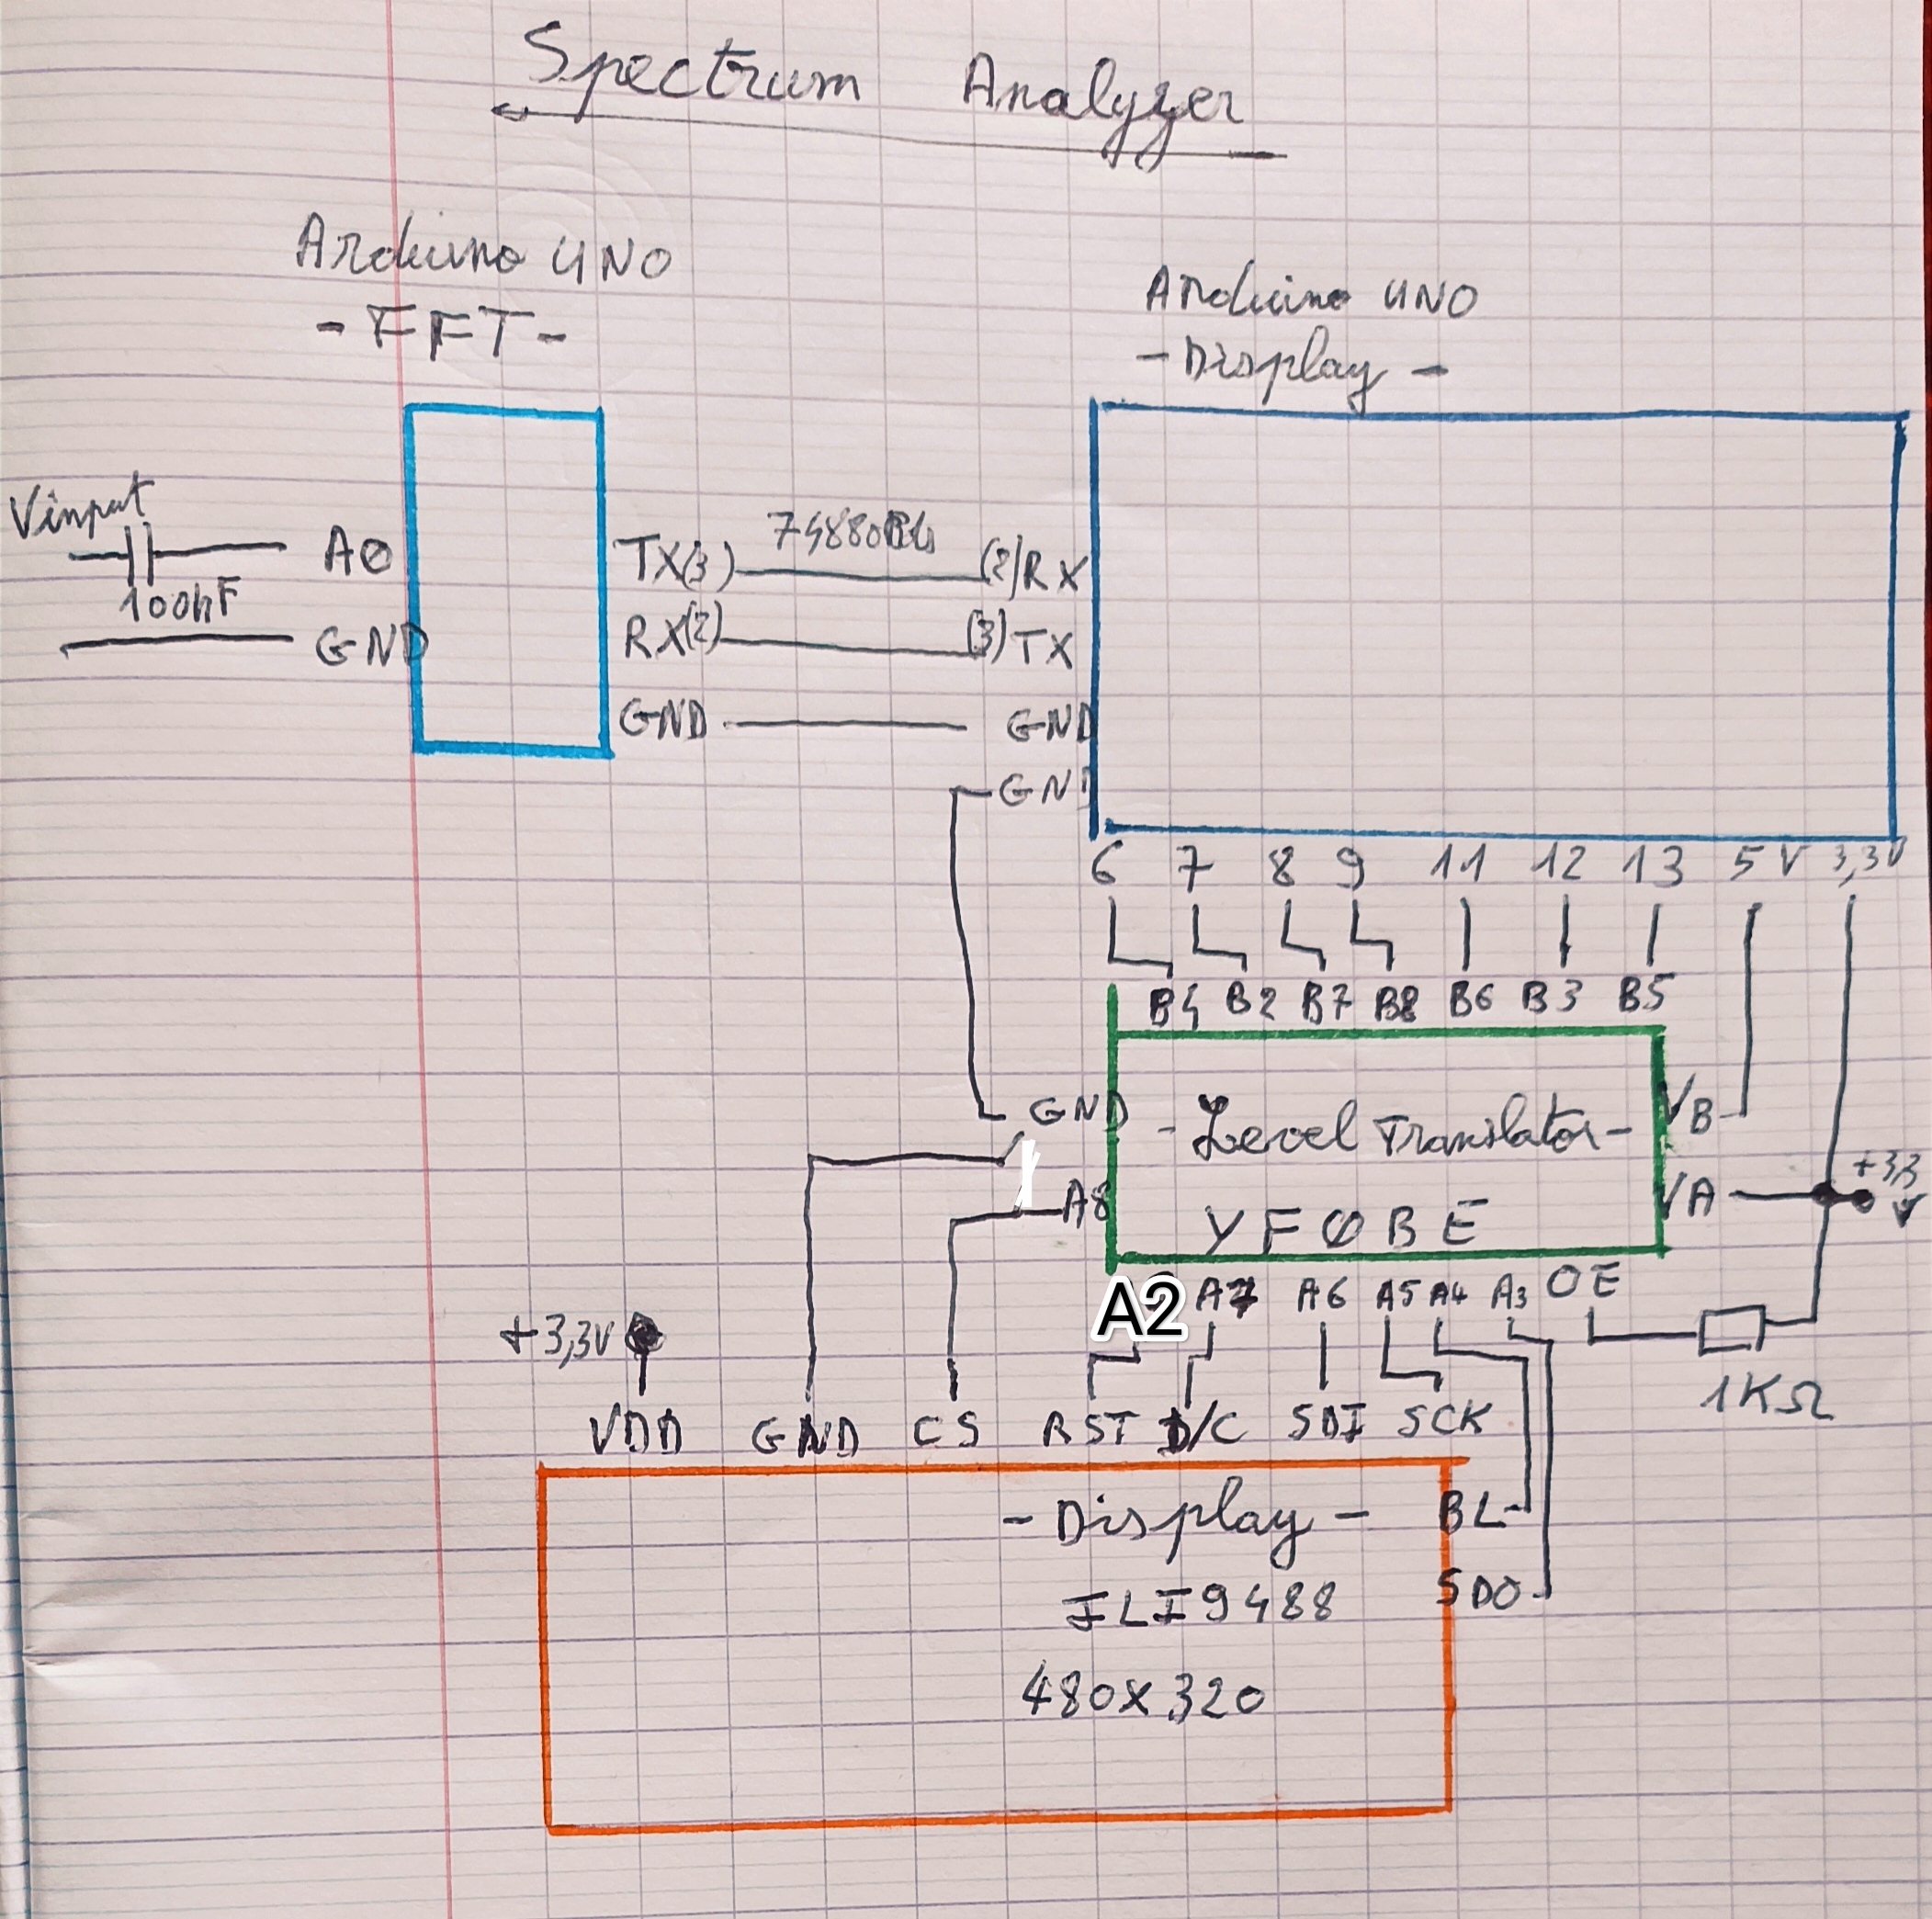 Spectrum Analyzer
Arduino UNO
- FFT -
Arduino UNO
- Display -
Vinput
100nF
A0
GND
TX(3)
(2)RX
RX(2)
(3)TX
GND
GND
GND
6 7 8 9 11 12 13 5V 3,3V
B4 B2 B7 B8 B6 B3 B5
GND
- Level Translator -
VB
A8
YF08E
VA
+3,3V
A2 A7 A6 A5 A4 A3 OE
1KΩ
+3,3V
VDD GND CS RST D/C SDI SCK
- Display -
BL
ILI9488
SDO
480x320